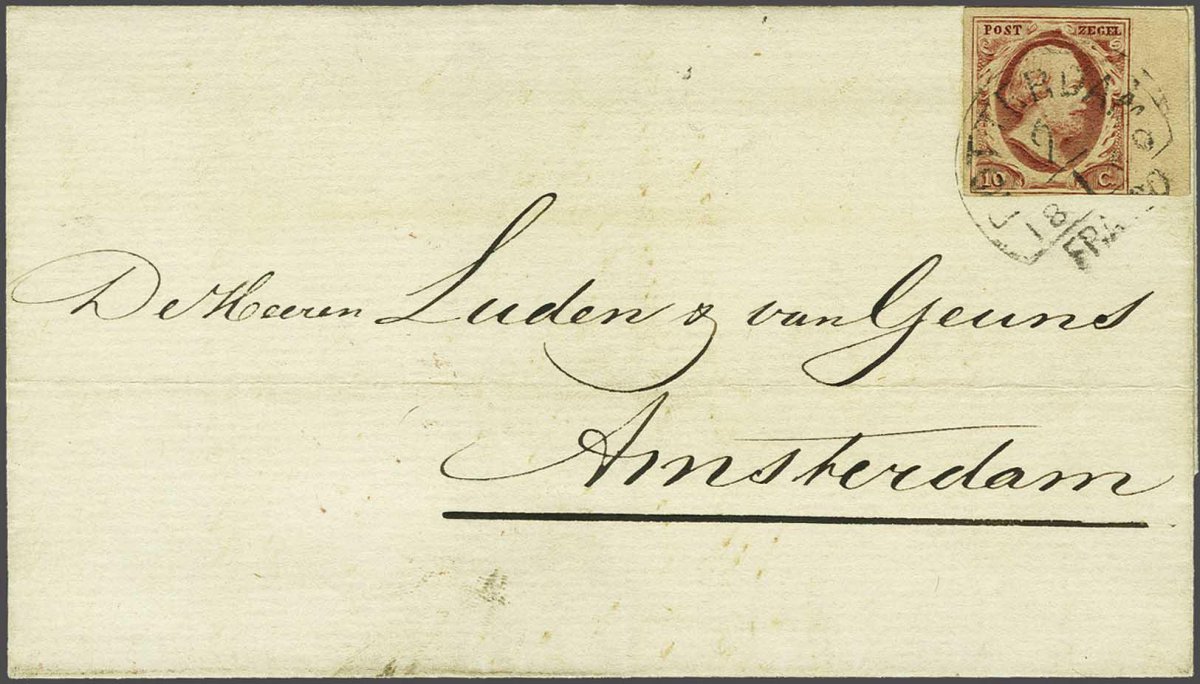 POST ZEGEL
10 C.
FRANCO
De Heeren Luden & van Geuns
Amsterdam